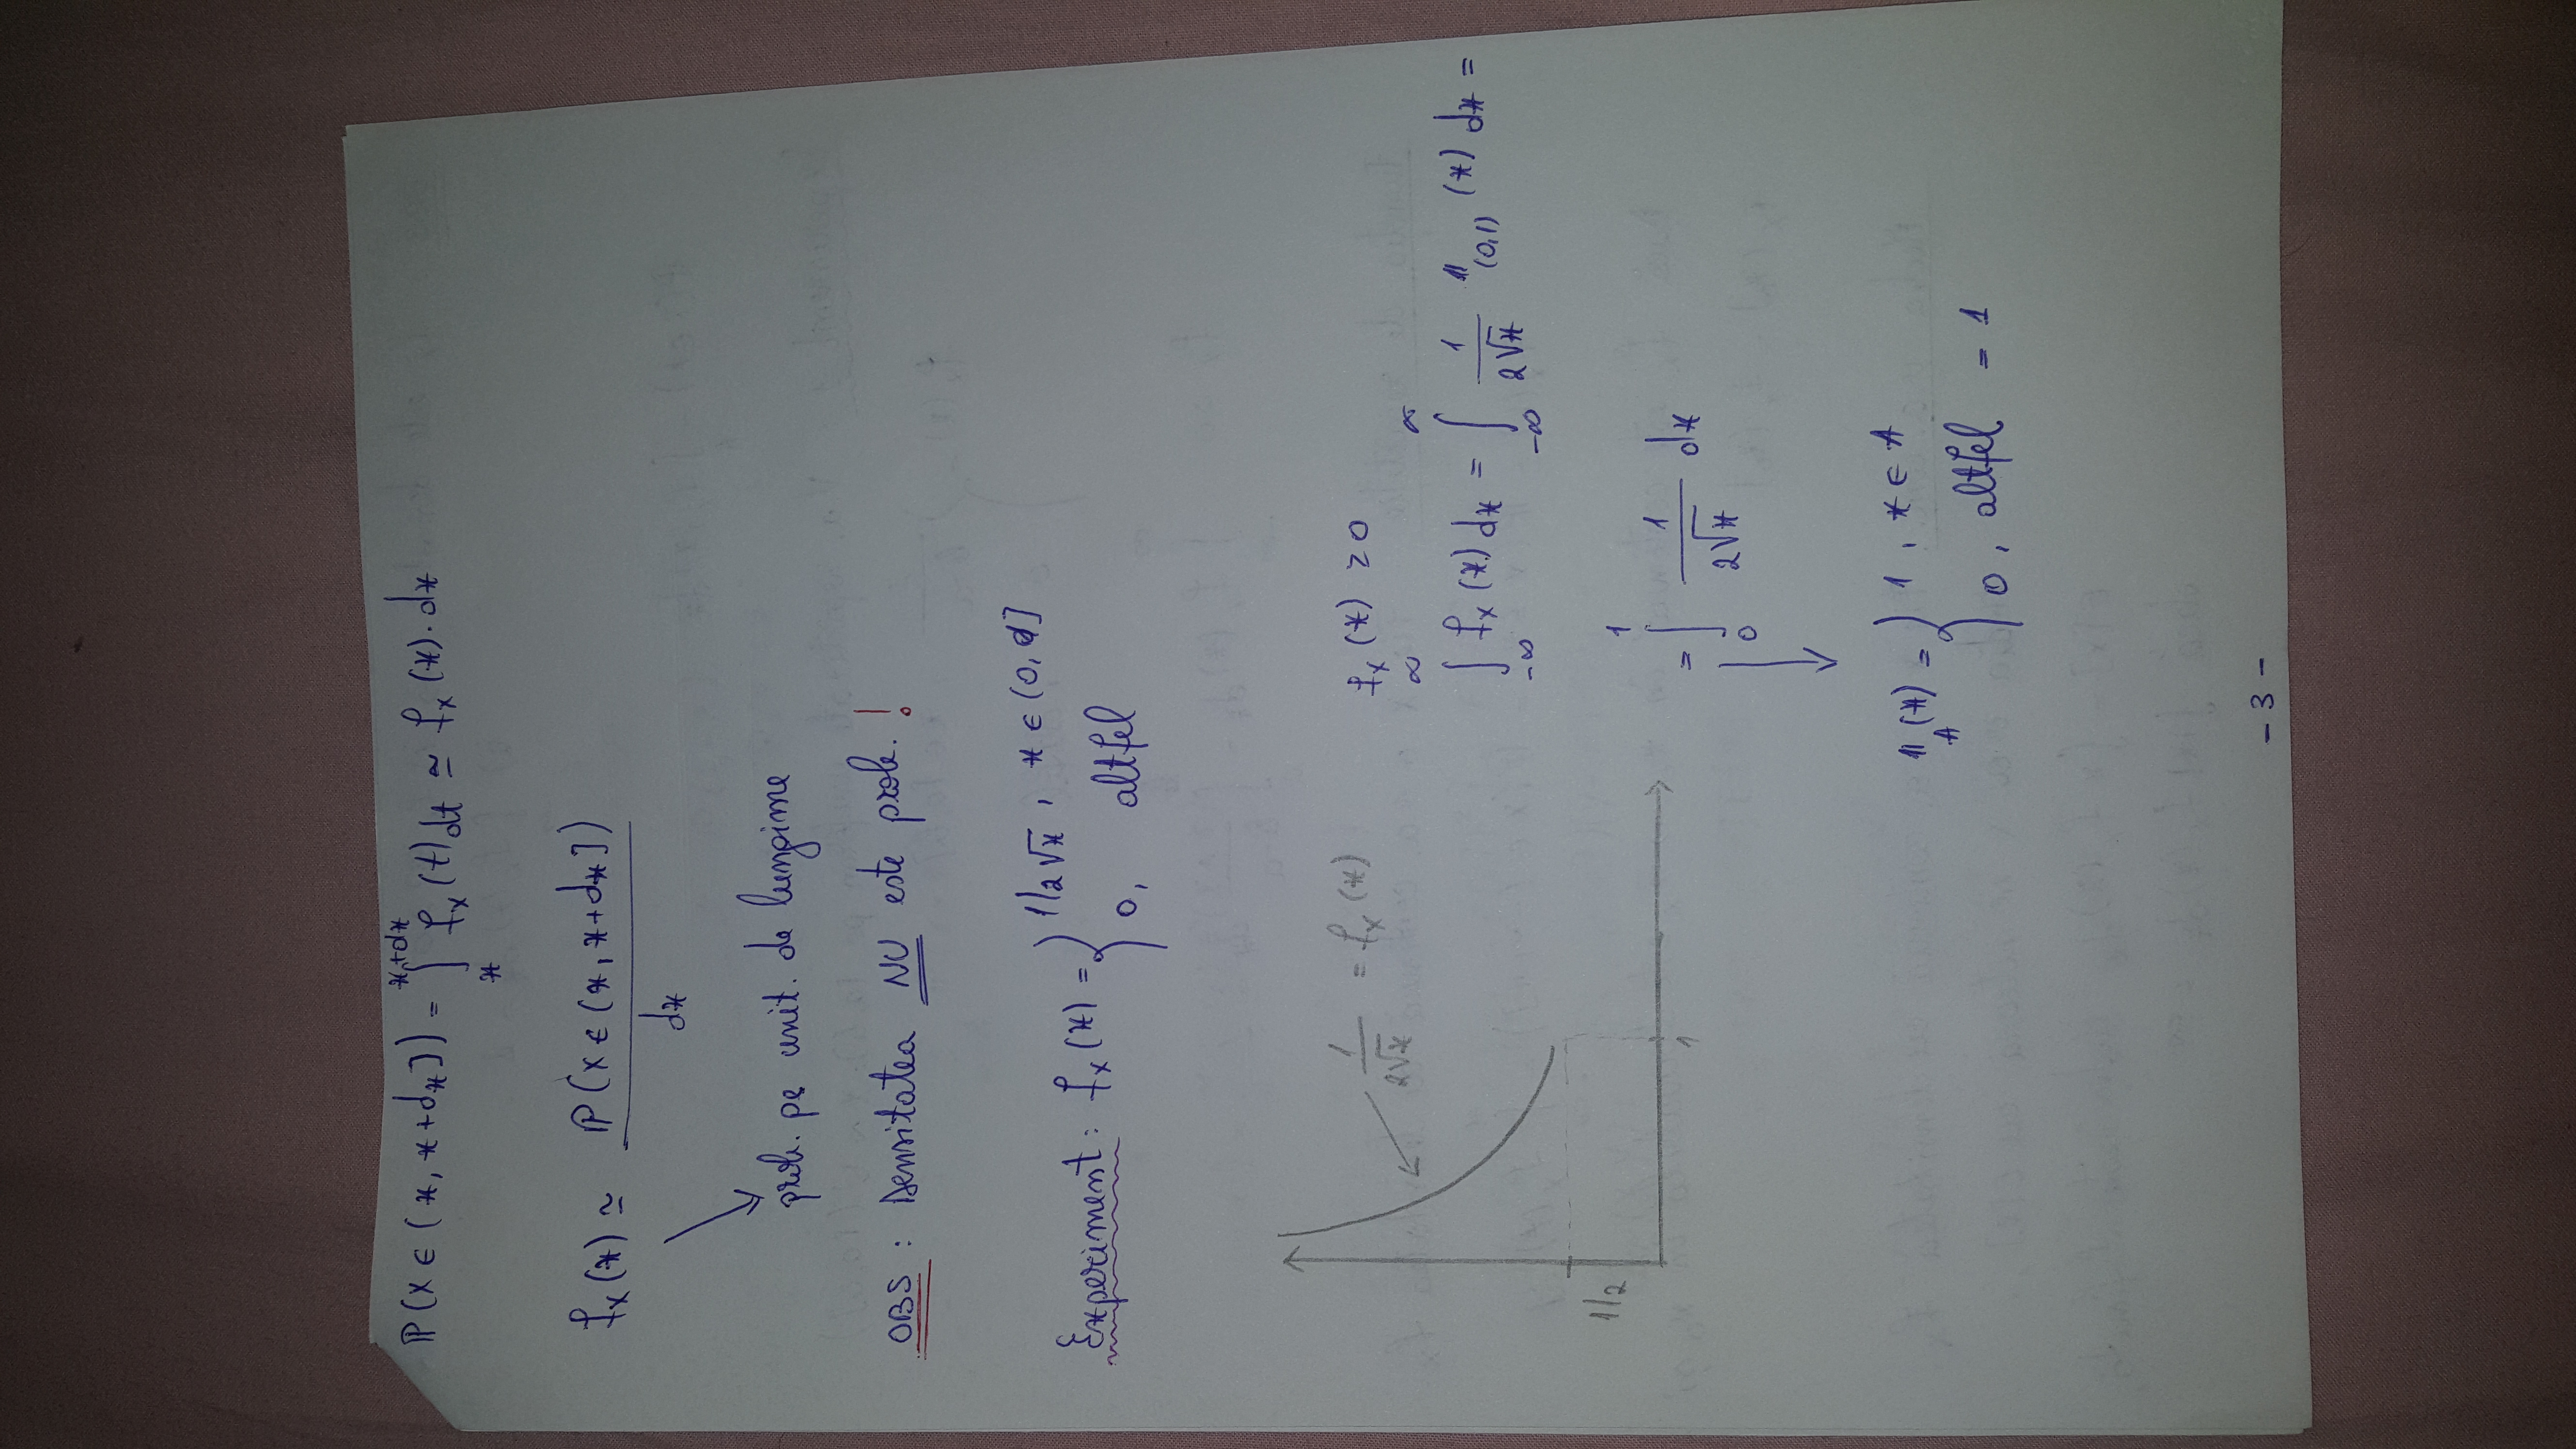 ℙ(X ∈ (x, x+dx]) = ∫_x^{x+dx} f_X(t) dt ≃ f_X(x) · dx
f_X(x) ≃ ℙ(X ∈ (x, x+dx]) / dx
prob. pe unit. de lungime
OBS : Densitatea NU este prob. !
Experiment : f_X(x) = { 1/2√x , x ∈ (0, 1]
0, altfel
1/(2√x) = f_X(x)
1/2
1
f_X(x) ≥ 0
∫_{-∞}^{∞} f_X(x) dx = ∫_{-∞}^{∞} 1/(2√x) 𝟙_{(0,1)}(x) dx =
= ∫_0^1 1/(2√x) dx
𝟙_A(x) = { 1 , x ∈ A
0 , altfel = 1
- 3 -